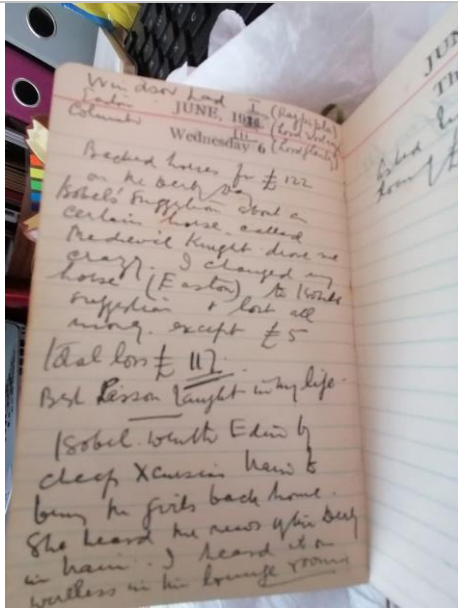 Windsor Lad I (Rajpipla)
Easton II (Lord Woolav)
Colombo III (Lord Glanely)
JUNE, 1934
Wednesday 6
Backed horses for £122
on the Derby Day
Isobel's suggestion about a
certain horse called
Medieval Knight drove me
crazy. I changed my
horse (Easton) to Isobel's
suggestion & lost all
money except £5
Total loss £117.
Best Lesson taught in my life.
Isobel went to Edin by
cheap Xcursion train to
bring the girls back home.
She heard the news of the Derby
in train. I heard it on
wireless in the lounge room
JUN
Th